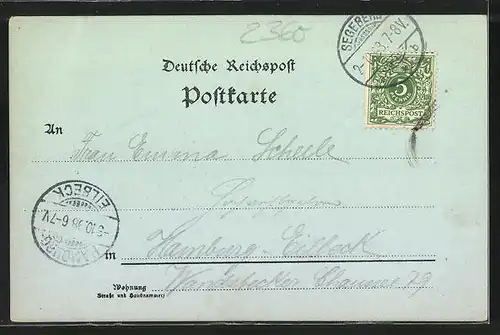 2360
SEGEBERG
7-8V.
5
REICHSPOST
Deutsche Reichspost
Postkarte
An
Frau Emma Scheele
EILBECK
3.10.98 6-7V.
HAMBURG
in Hamburg-Eilbeck
Wandsbecker Chaussee 79
Wohnung
(Straße und Hausnummer)